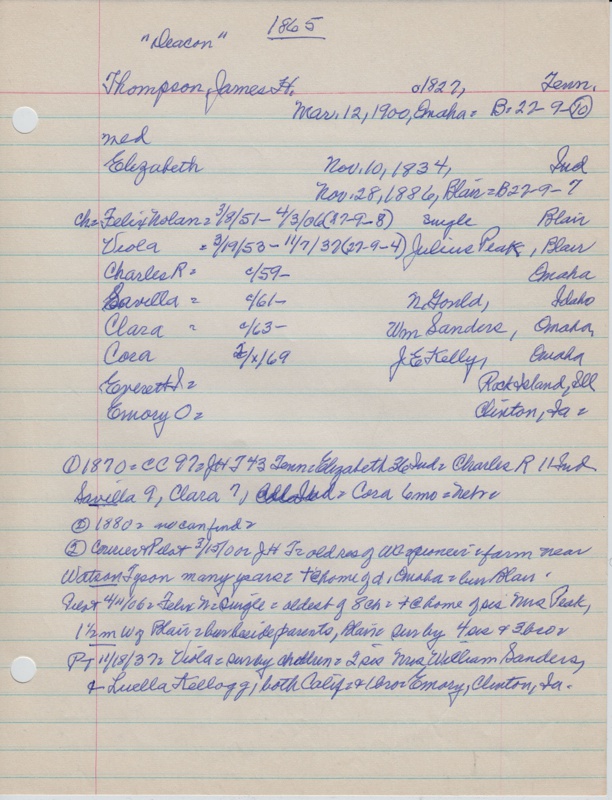 1865
"Deacon"
Thompson, James H. c/1827, Tenn.
Mar. 12, 1900, Omaha = B = 22-9-10
med
Elizabeth Nov. 10, 1834, Ind
Nov. 28, 1886, Blair = B 22-9-7
ch = Felix Nolan = 3/8/51 - 4/3/06 (27-9-8) single Blair
Viola = 3/19/53 - 11/7/37 (27-9-4) Julius Peak, Blair
Charles R = c/59 - Omaha
Savilla = c/61 - N. Gould, Idaho
Clara = c/63 - Wm Sanders, Omaha,
Cora 2/x/69 J. E. Kelly, Omaha
Everett S =
Rock Island, Ill
Emory O = Clinton, Ia =
① 1870 = CC 97 = JH T 43 Tenn = Elizabeth 36 Ind = Charles R 11 Ind
Savilla 9, Clara 7, = Cora 6 mo = Nebr =
② 1880 = no can find =
② Courier + Pilot 3/15/00 = JH T = old res of = pioneer = farm near
Watson Tyson many years = + home of d, Omaha = bur Blair.
Pilot 4/11/06 = Felix N = Single = oldest of 8 ch = + home of sis Mrs Peak,
1½ m W of Blair = bur beside parents, Blair = sur by 4 sis & 3 bro =
PT 11/18/37 = Viola = sur by children = 2 sis Mrs William Sanders,
& Luella Kellogg, both Calif = & 1 bro = Emory, Clinton, Ia.